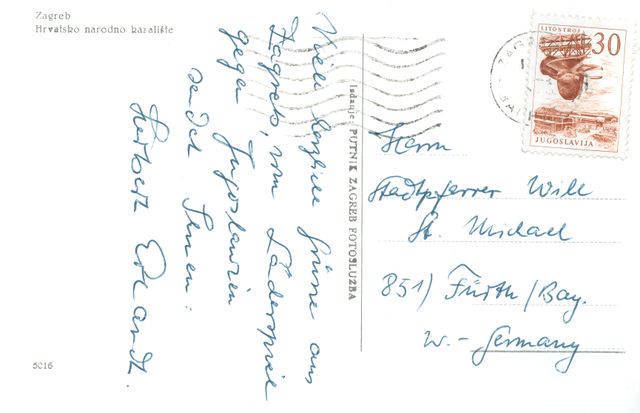 Zagreb
Hrvatsko narodno kazalište
Viele herzliche Grüsse aus
Zagreb, vom Länderspiel
gegen Jugoslawien
sendet Ihnen
Herbert Erhardt.
Izdanje: PUTNIK ZAGREB FOTOSLUŽBA
LITOSTROJ
30
JUGOSLAVIJA
Herrn
Stadtpfarrer Will
St. Michael
851) Fürth/Bay.
W.-Germany
5016